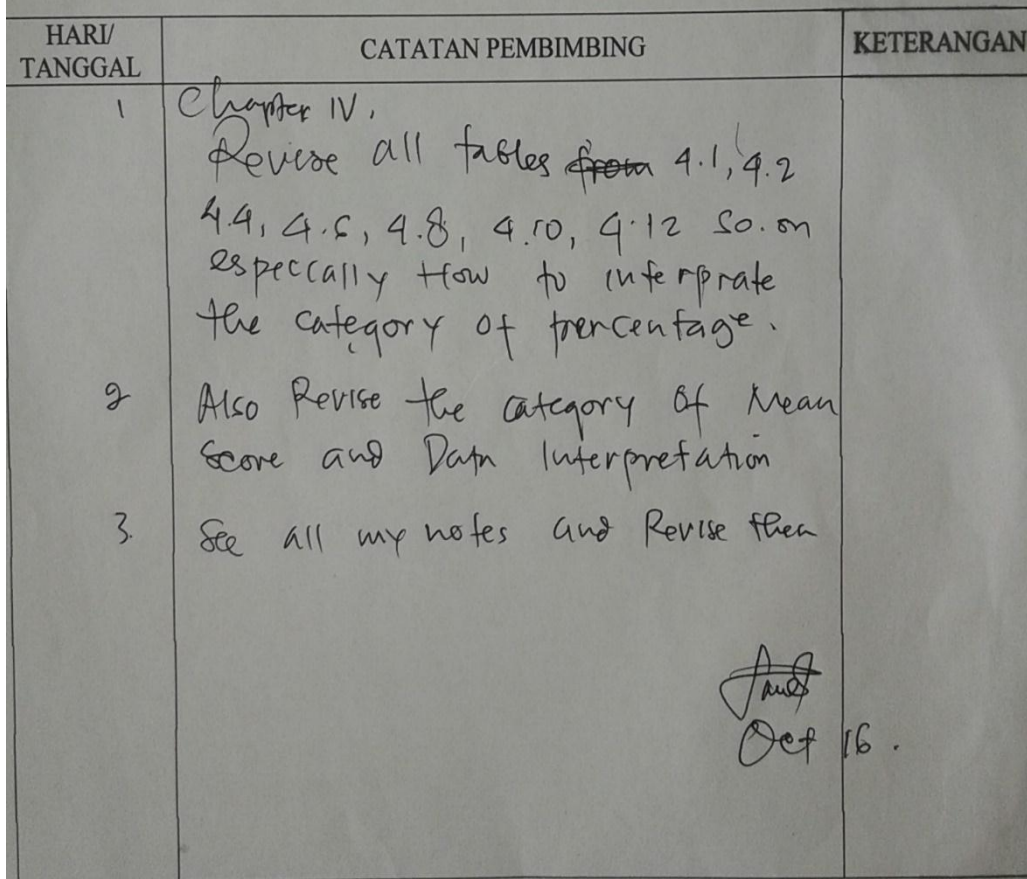 HARI/
TANGGAL
CATATAN PEMBIMBING
KETERANGAN
1 Chapter IV.
Revise all tables from 4.1, 4.2
4.4, 4.6, 4.8, 4.10, 4.12 so.on
especcally How to interprate
the category of percentage.
2 Also Revise the category of Mean
Score and Data Interpretation
3. See all my notes and Revise then
Oct 16.